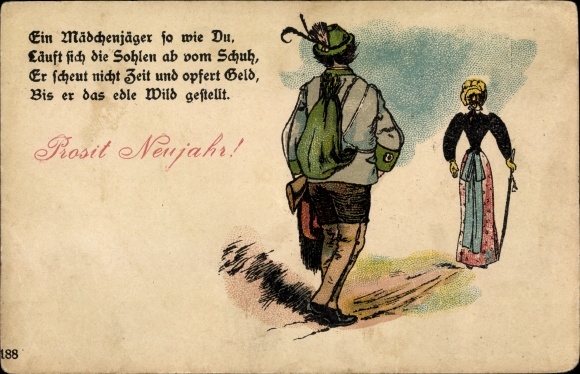 Ein Mädchenjäger so wie Du,
Läuft sich die Sohlen ab vom Schuh,
Er scheut nicht Zeit und opfert Geld,
Bis er das edle Wild gestellt.
Prosit Neujahr!
188